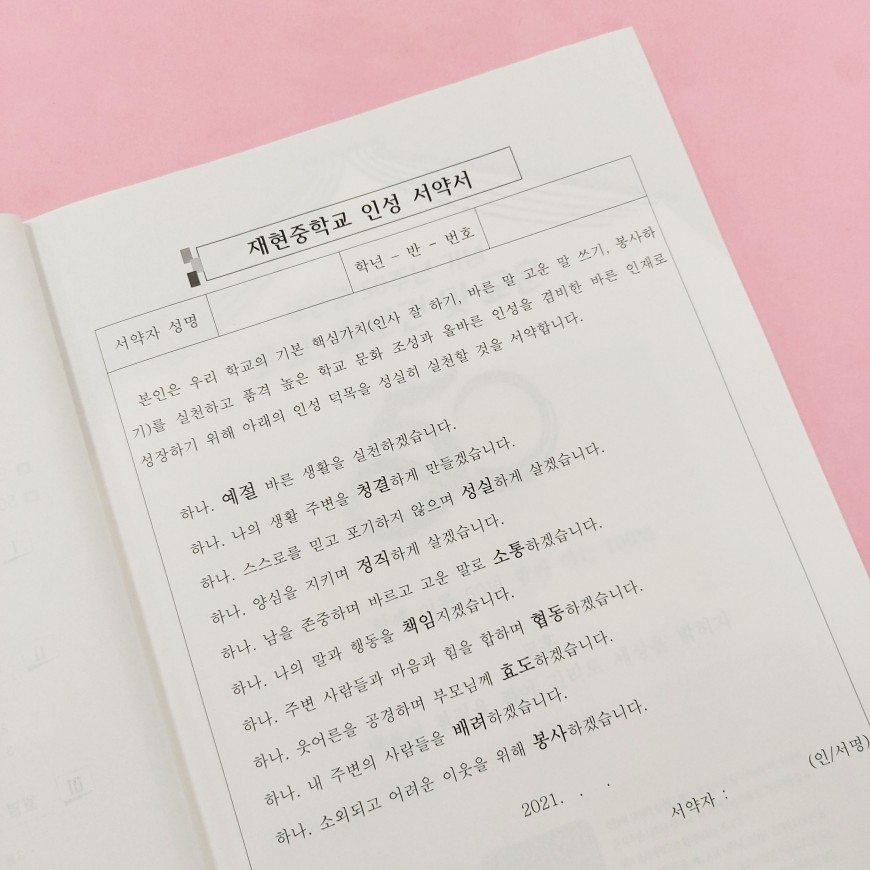 재현중학교 인성 서약서
서약자 성명
학년 - 반 - 번호
본인은 우리 학교의 기본 핵심가치(인사 잘 하기, 바른 말 고운 말 쓰기, 봉사하
기)를 실천하고 품격 높은 학교 문화 조성과 올바른 인성을 겸비한 바른 인재로
성장하기 위해 아래의 인성 덕목을 성실히 실천할 것을 서약합니다.
하나. 예절 바른 생활을 실천하겠습니다.
하나. 나의 생활 주변을 청결하게 만들겠습니다.
하나. 스스로를 믿고 포기하지 않으며 성실하게 살겠습니다.
하나. 양심을 지키며 정직하게 살겠습니다.
하나. 남을 존중하며 바르고 고운 말로 소통하겠습니다.
하나. 나의 말과 행동을 책임지겠습니다.
하나. 주변 사람들과 마음과 힘을 합하며 협동하겠습니다.
하나. 웃어른을 공경하며 부모님께 효도하겠습니다.
하나. 내 주변의 사람들을 배려하겠습니다.
하나. 소외되고 어려운 이웃을 위해 봉사하겠습니다.
2021. . .
서약자 : (인/서명)